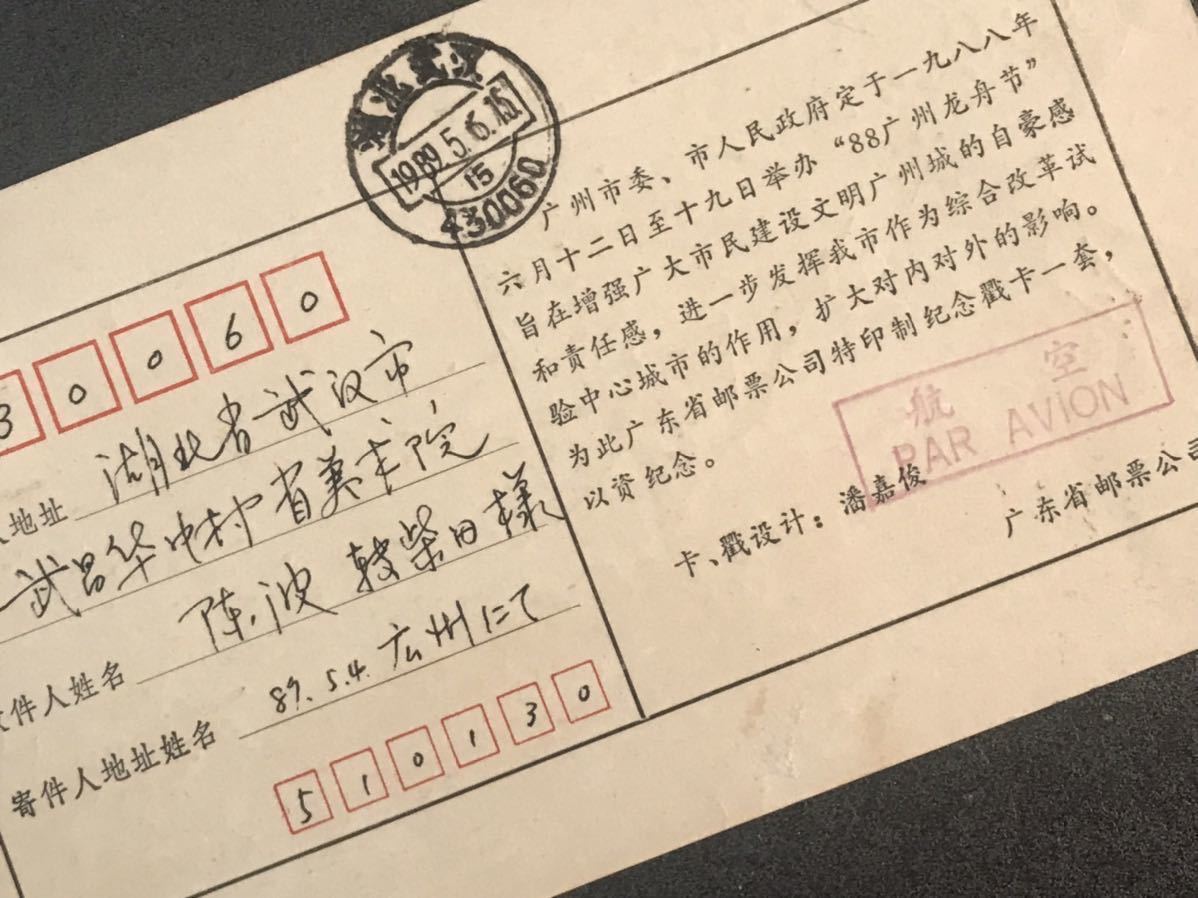 湖北武汉
1989.5.6.15
15
430060
3 0 0 6 0
人地址 湖北省武汉市
武昌华中村省美术院
件人姓名 陈波 转柴田様
寄件人地址姓名 89.5.4. 広州にて
5 1 0 1 3 0
广州市委、市人民政府定于一九八八年
六月十二日至十九日举办“88广州龙舟节”
旨在增强广大市民建设文明广州城的自豪感
和责任感，进一步发挥我市作为综合改革试
验中心城市的作用，扩大对内对外的影响。
为此广东省邮票公司特印制纪念戳卡一套，
以资纪念。
航空
PAR AVION
卡、戳设计：潘嘉俊
广东省邮票公司